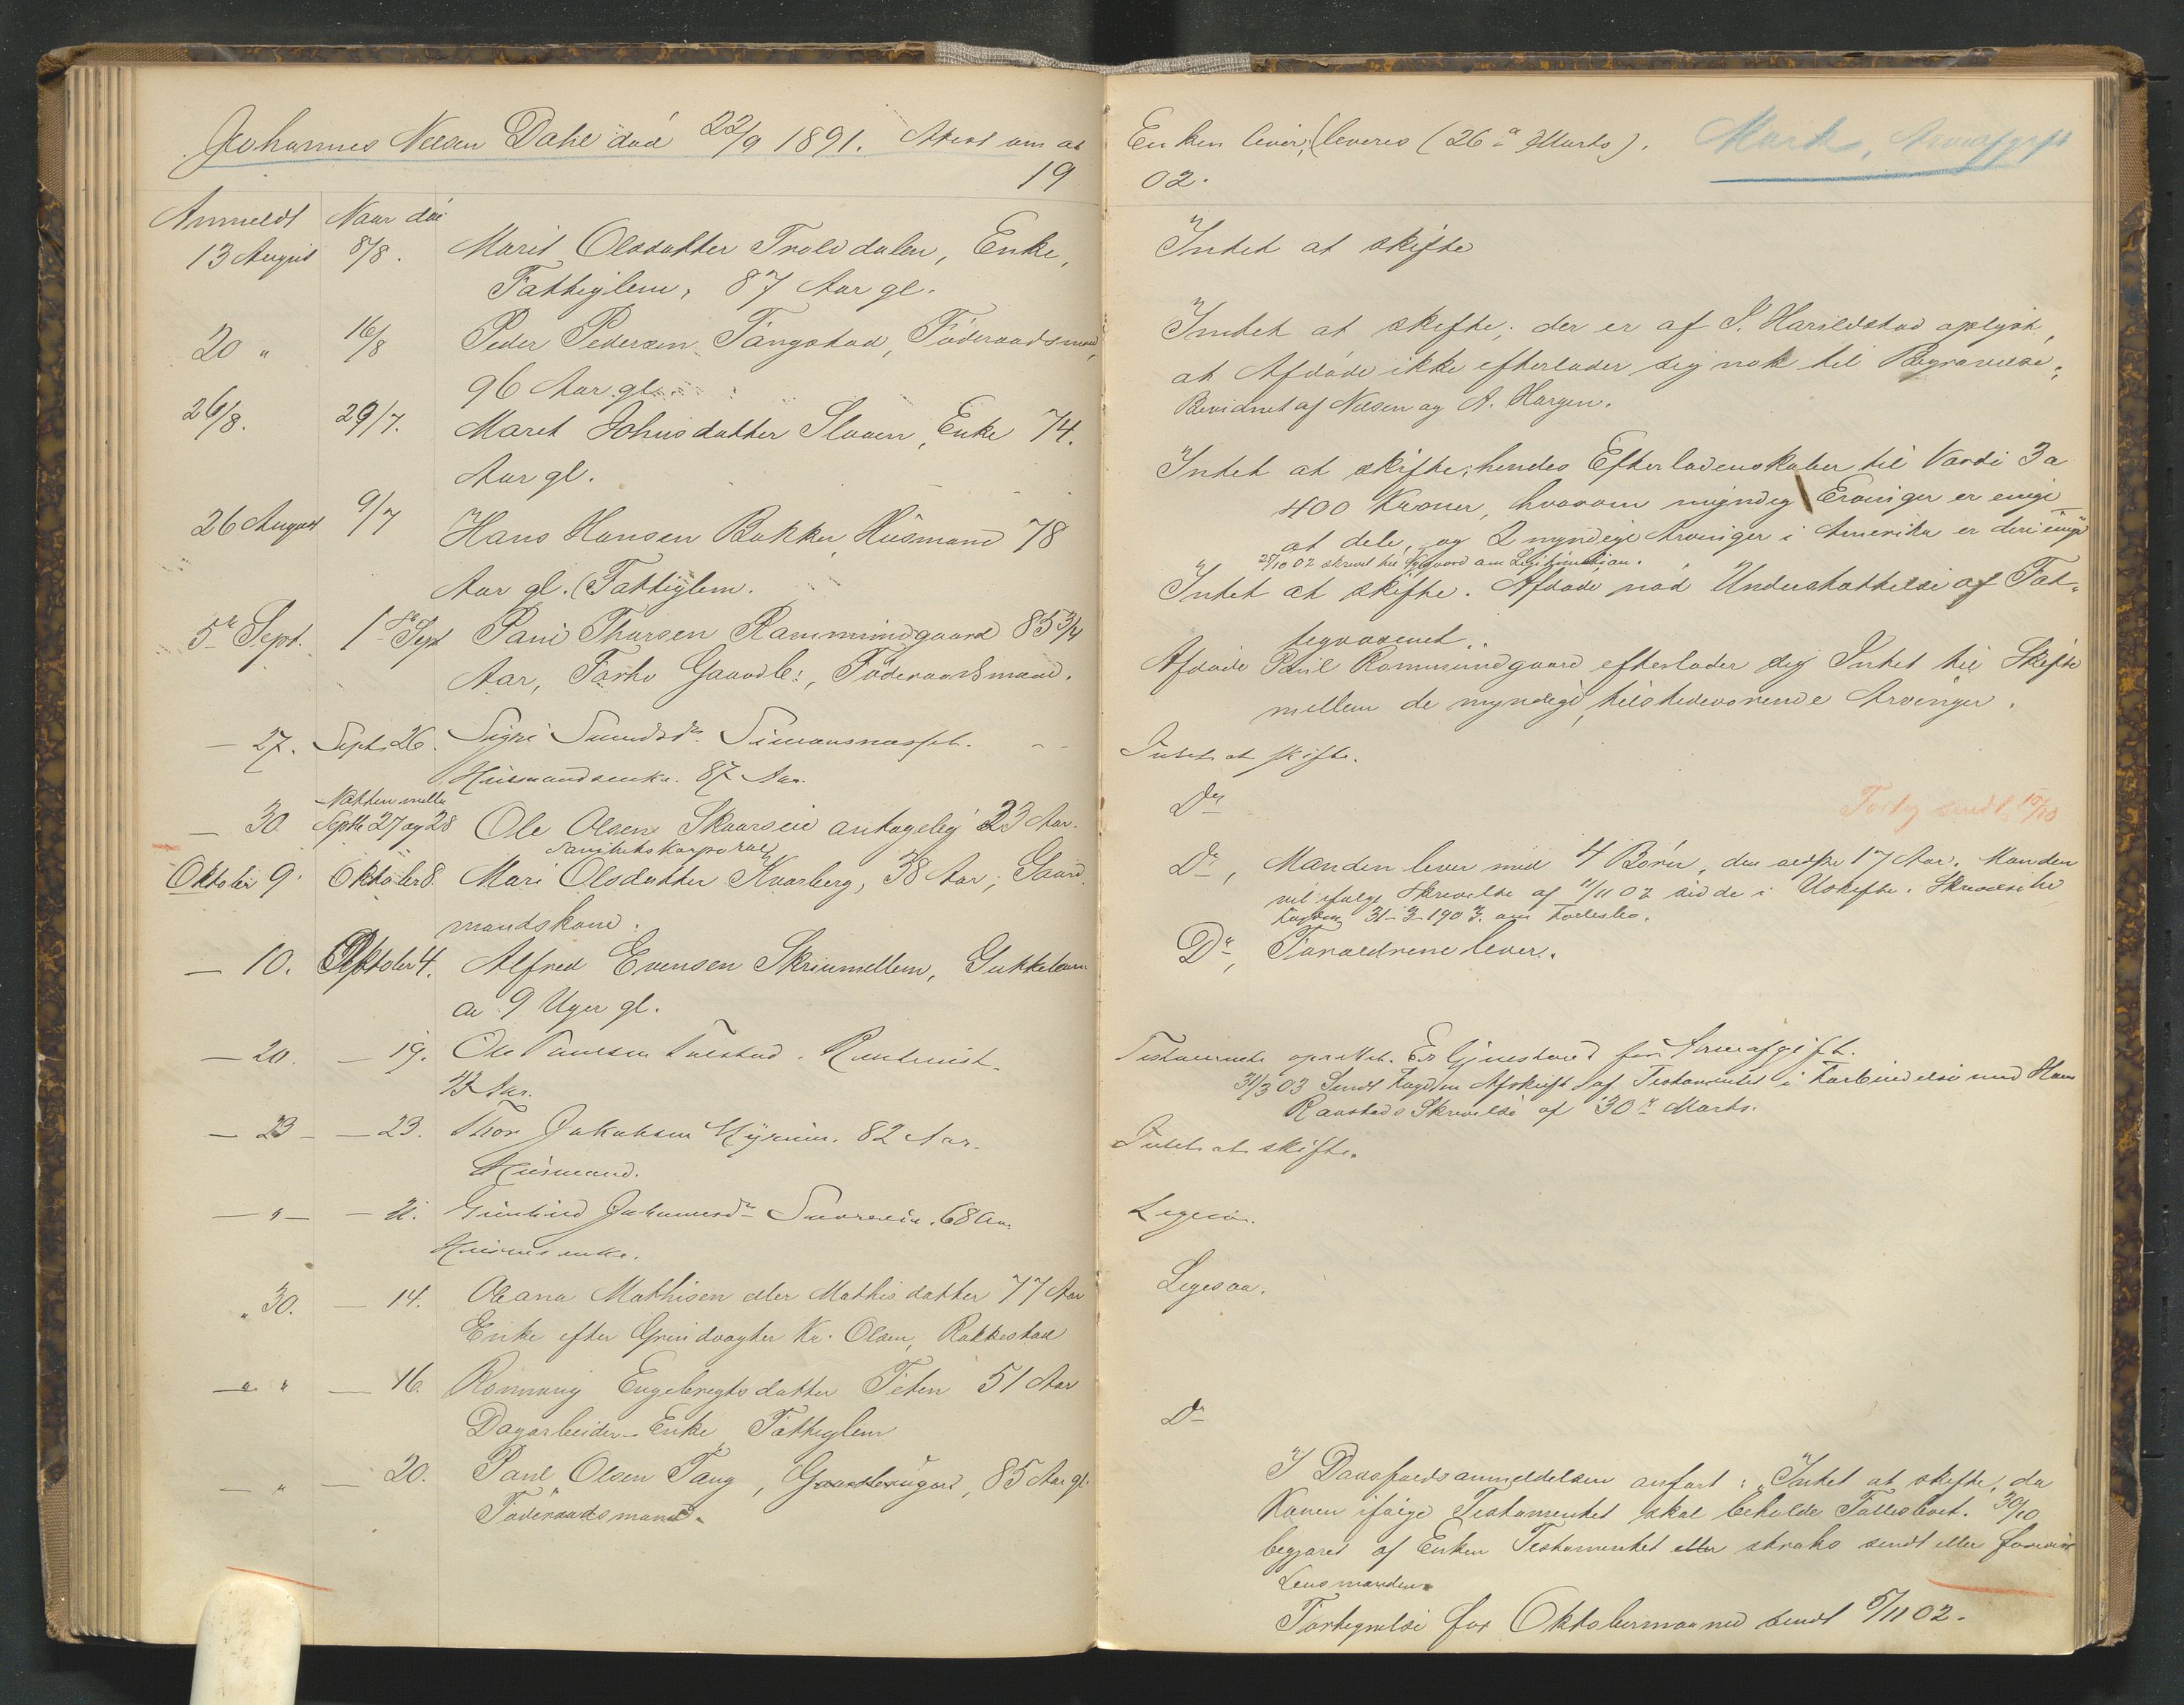 Johannes Nilsen Dahl død 22/9 1891. Attest om at
19
Anmeldt Naar død
13 August 8/8. Marit Olsdatter Trolddalen, Enke,
Fattiglem, 87 Aar gl.
20 " 16/8 Peder Pedersen Tangstad, Føderaadsmand,
96 Aar gl.
26/8. 29/7. Maret Johnsdatter Slaaen, Enke 74.
Aar gl.
26 August 9/7 Hans Hansen Bakken Husmand 78
Aar gl. (Fattiglem.
5te Sept. 1ste Sept Paul Thorsen Rammundgaard 85 3/4
Aar, Forhv Gaardbr:, Føderaadsmand.
— 27. Septb 26. Sigri Simonsnæsset.
Husmandsenke. 87 Aar.
Natten mellem
— 30. Septbr 27 og 28 Ole Olsen Skaarseie antagelig 23 Aar.
Sanitetskorporal
Oktober 9. Oktober 8. Mari Olsdatter Kvarberg, 38 Aar, Gaard
mandskone.
— 10. Oktober 4. Alfred Evensen Skriumellem, Gutteban
ca 9 Uger gl.
— 20. — 19. Ole Paulsen
Aar.
— 23 — — 23. Thor Jakobsen 82 Aar.
Husmand.
— " — — 21. 68 Aar
enke.
" 30. — 14. Oleana Mathisen eller Mathisdatter 77 Aar
Enke efter Grindvogter Kr. Olsen, Rakkestad
— " " — 16. Rønnaug Engebregtsdatter Teten 51 Aar
Dagarbeider-Enke Fattiglem
— " — 20. Paul Olsen Tang, Gaardbruger, 85 Aar gl.
Føderaadsmand.
Enken lever, leveres (26de Marts). Mark, Arveafgift
02.
Intet at skifte
Intet at skifte; der er af I. Harildstad oplyst,
at Afdøde ikke efterlader sig nok til Begravelse.
Bevidnet af Nilsen og A. Horgen.
Intet at skifte; hendes Efterladenskaber til Værdi 3 a
400 Kroner, hvorom myndig Ervinger er enige
at dele, og 2 myndige Arvinger i Amerika er deri enige
25/10 02 skrevet til om Legitimation.
Intet at skifte. Afdøde nød Understøttelse af Fat-
tigvæsenet.
Afdøde Paul Rammundgaard efterlader sig Intet til Skifte
mellem de myndige tilstedeværende Arvinger.
Intet at skifte.
Do Forteg sendt 10/10
Do, Manden lever med 4 Børn, den ældste 17 Aar. Manden
vil ifølge Skrivelse af 11/11 02 sidde i Uskifte. Skrivelse til
Fogden 31-3-1903. om Fællesbo.
Do, Forældrene lever.
Testamente oprettet. Er Gjenstand for Arveafgift.
31/3 03 Sendt Fogden Afskrift af Testamentet i Forbindelse med Hans
Skrivelse af 30te Marts.
Intet at skifte.
Ligesaa.
Ligesaa.
Do
I Dødsfaldsanmeldelsen anført: "Intet at skifte, da
Konen ifølge Testamentet skal beholde Fællesboet. 30/10
begjæret af Enken Testamentet eller straks sendt eller forevist
Lensmanden.
Fortegnelse for Oktobermaaned sendt 5/11 02.